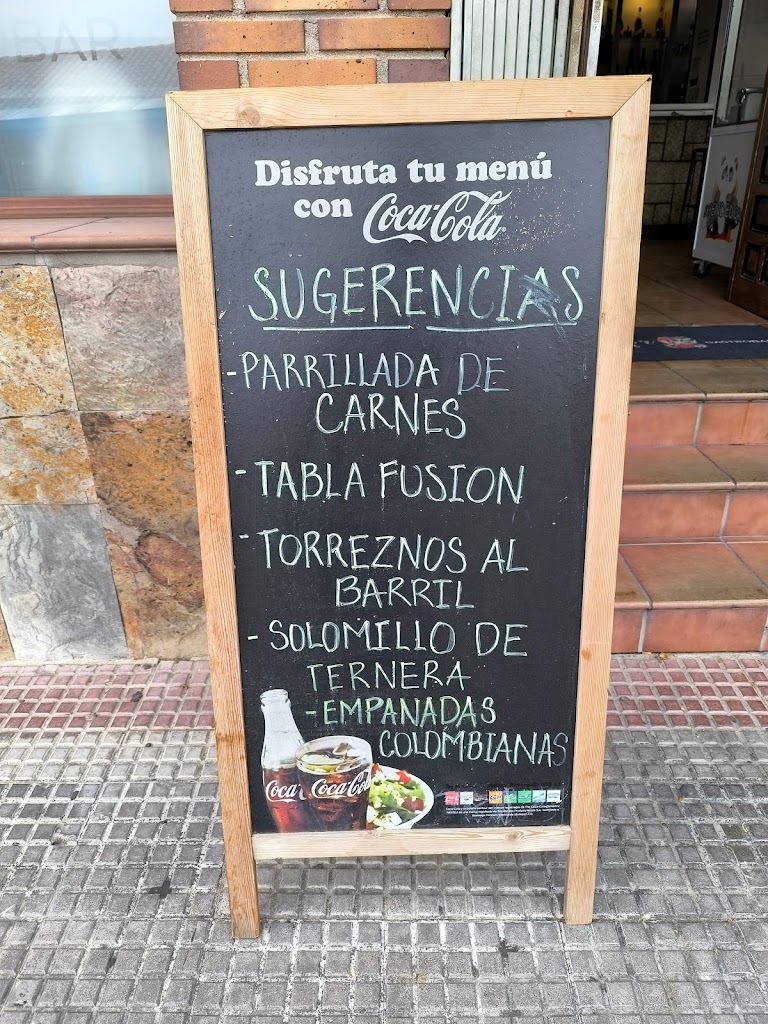 BAR
Disfruta tu menú
con Coca-Cola
SUGERENCIAS
-PARRILLADA DE
CARNES
-TABLA FUSION
-TORREZNOS AL
BARRIL
-SOLOMILLO DE
TERNERA
-EMPANADAS
COLOMBIANAS
Coca
Coca-Cola